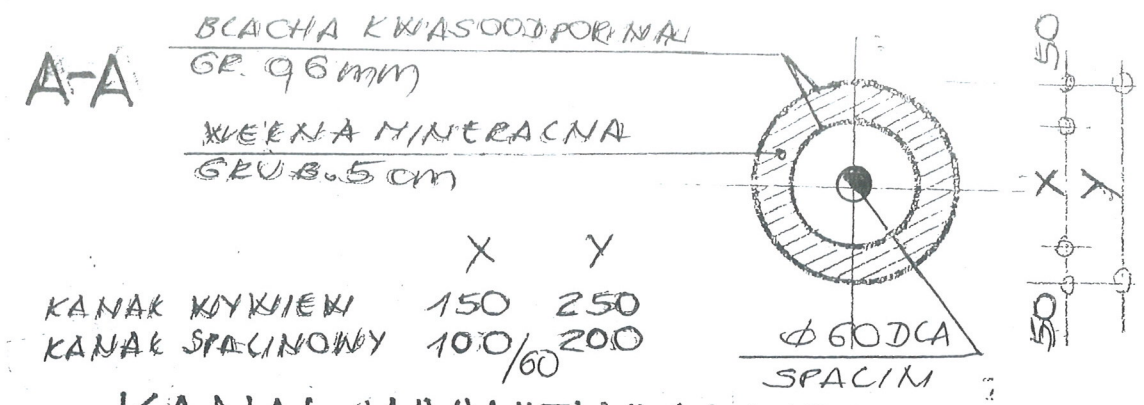 A-A
BLACHA KWASOODPORNA
GR. 0,6 mm
WEŁNA MINERALNA
GRUB. 5 cm
X Y
KANAŁ WYWIEW 150 250
KANAŁ SPALINOWY 100/60 200
Ø 60 DLA
SPALIN
50
X Y
50
KANAŁ